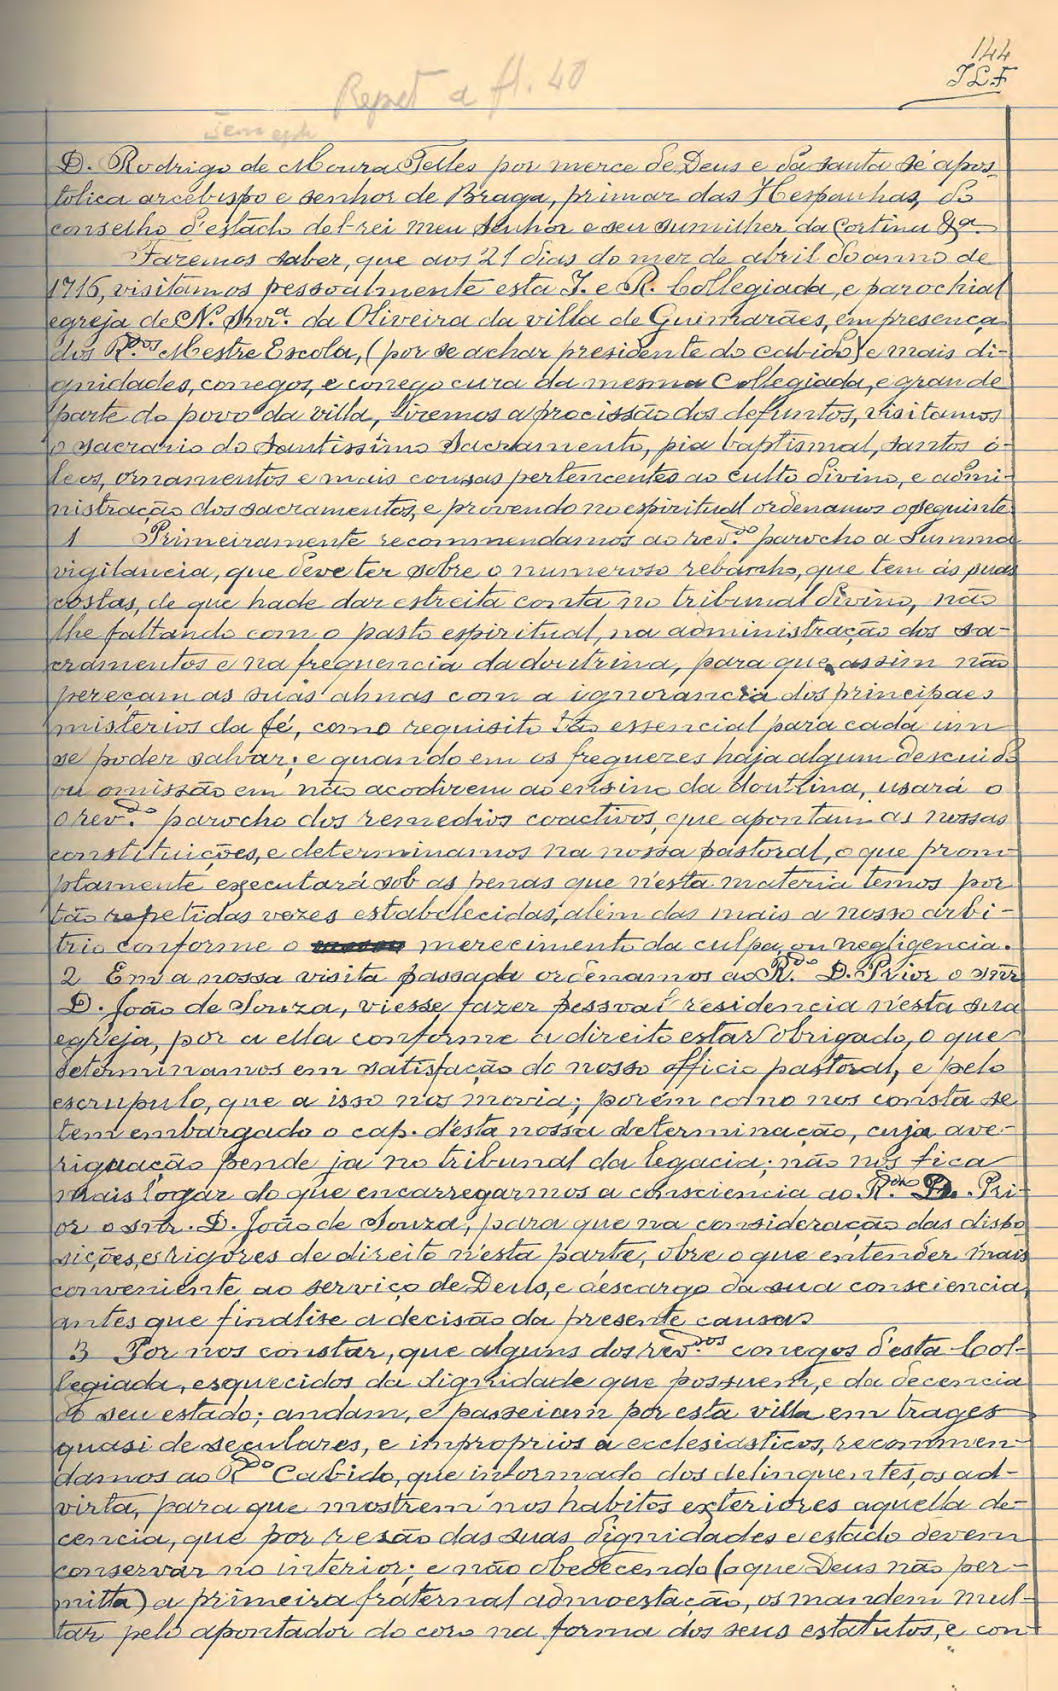 144
JLF
Repet a fl. 40
D. Rodrigo de Moura Telles por merce de Deus e da santa sé apos-
tolica arcebispo e senhor de Braga, primaz das Hespanhas, do
conselho d'estado del-rei meu senhor e seu sumilher da cortina &ª
Fazemos saber, que aos 21 dias do mez de abril do anno de
1716, visitamos pessoalmente esta I. e R. Collegiada, e parochial
egreja de N. Snrª. da Oliveira da villa de Guimarães, em presença
dos R.dos Mestre Escola, (por se achar presidente do cabido) e mais di-
gnidades, conegos, e conego cura da mesma Collegiada, e grande
parte do povo da villa, fizemos a procissão dos defuntos, visitamos
o sacrario do santissimo sacramento, pia baptismal, santos o-
leos, ornamentos e mais cousas pertencentes ao culto divino, e admi-
nistração dos sacramentos, e provendo no espiritual ordenamos o seguinte
1 Primeiramente recommendamos ao rev.do parocho a summa
vigilancia, que deve ter sobre o numeroso rebanho, que tem ás suas
costas, de que hade dar estreita conta no tribunal divino, não
lhe faltando com o pasto espiritual, na administração dos sa-
cramentos e na frequencia da doutrina, para que assim não
pereçam as suas almas com a ignorancia dos principaes
misterios da fé, como requisito tão essencial para cada um
se poder salvar; e quando em os freguezes haja algum descuido
ou omissão em não acodirem ao ensino da doutrina, usará o
o rev.do parocho dos remedios coactivos, que apontam as nossas
constituições, e determinamos na nossa pastoral, o que prom-
ptamente executará sob as penas que n'esta materia temos por
tão repetidas vezes estabelecidas, além das mais a nosso arbi-
trio conforme o merecimento da culpa, ou negligencia.
2 Em a nossa visita passada ordenamos ao R.do D. Prior o snr
D. João de Souza, viesse fazer pessoal residencia n'esta sua
egreja, por a ella conforme a direito estar obrigado, o que
determinamos em satisfação do nosso officio pastoral, e pelo
escrupulo, que a isso nos movia; porém como nos consta se
tem embargado o cap. d'esta nossa determinação, cuja ave-
riguação pende ja no tribunal da legacia; não nos fica
mais logar do que encarregarmos a consciencia ao R.do D. Pri-
or o snr. D. João de Souza, para que na consideração das dispo
sições, e rigores de direito n'esta parte, obre o que entender mais
conveniente ao serviço de Deus, e descargo da sua consciencia,
antes que finalise a decisão da presente causa
3 Por nos constar, que alguns dos rev.dos conegos d'esta Col-
legiada, esquecidos da dignidade que possuem, e da decencia
do seu estado; andam, e passeiam por esta villa em trages
quasi de seculares, e improprios a ecclesiasticos, recommen-
damos ao R.do Cabido, que informado dos delinquentes, os ad-
virta, para que mostrem nos habitos exteriores aquella de-
cencia, que por resão das suas dignidades e estado devem
conservar no interior; e não obedecendo (o que Deus não per-
mitta) a primeira fraternal admoestação, os mandem mul-
tar pelo apontador do coro na forma dos seus estatutos, e con-